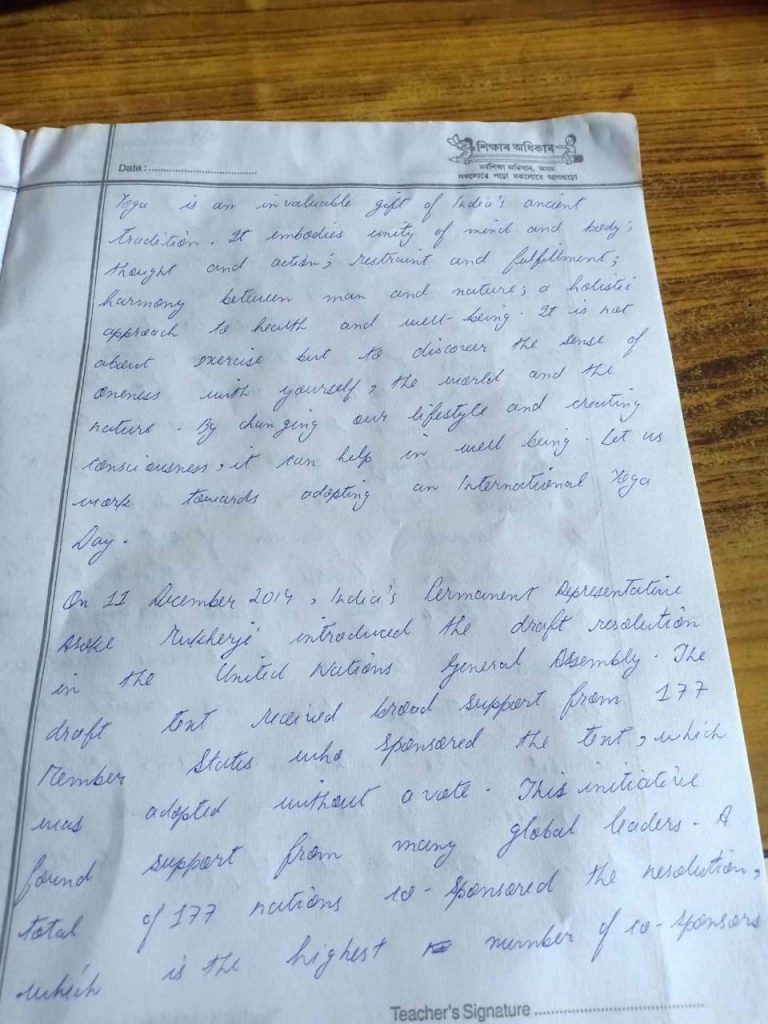 Date :
শিক্ষাৰ অধিকাৰ
সৰ্বশিক্ষা অভিযান, অসম
সকলোৱে পঢ়ো সকলোৱে আগবাঢ়ো
Yoga is an invaluable gift of India's ancient
tradition. It embodies unity of mind and body;
thought and action; restraint and fulfillment;
harmony between man and nature; a holistic
approach to health and well-being. It is not
about exercise but to discover the sense of
oneness with yourself, the world and the
nature. By changing our lifestyle and creating
consciousness, it can help in well being. Let us
work towards adopting an International Yoga
Day.
On 11 December 2014, India's Permanent Representative
Asoke Mukherji introduced the draft resolution
in the United Nations General Assembly. The
draft text received broad support from 177
Member States who sponsored the text, which
was adopted without a vote. This initiative
found support from many global leaders. A
total of 177 nations co-sponsored the resolution,
which is the highest number of co-sponsors
Teacher's Signature